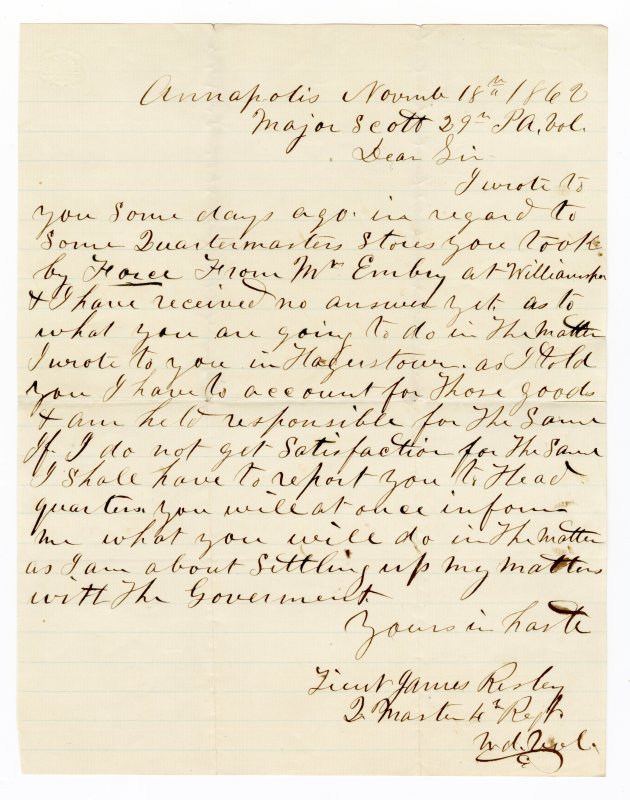 Annapolis Novmb 18th 1862
Major Scott 29th PA. Vol.
Dear Sir
I wrote to
you some days ago. in regard to
some Quartermasters stores you took
by Force From Mr Embry at Williamspor
& I have received no answer yet as to
what you are going to do in The matter
I wrote to you in Hagerstown. as I told
you I have to account for Those goods
& am held responsible for The Same
If I do not get Satisfaction for The Same
I shall have to report you to Head
quarters you will at once inform
me what you will do in The matter
as I am about Settling up my matters
with The Goverment
Yours in haste
Lieut James Risley
Q Master 4th Regt.
Md. Vol.